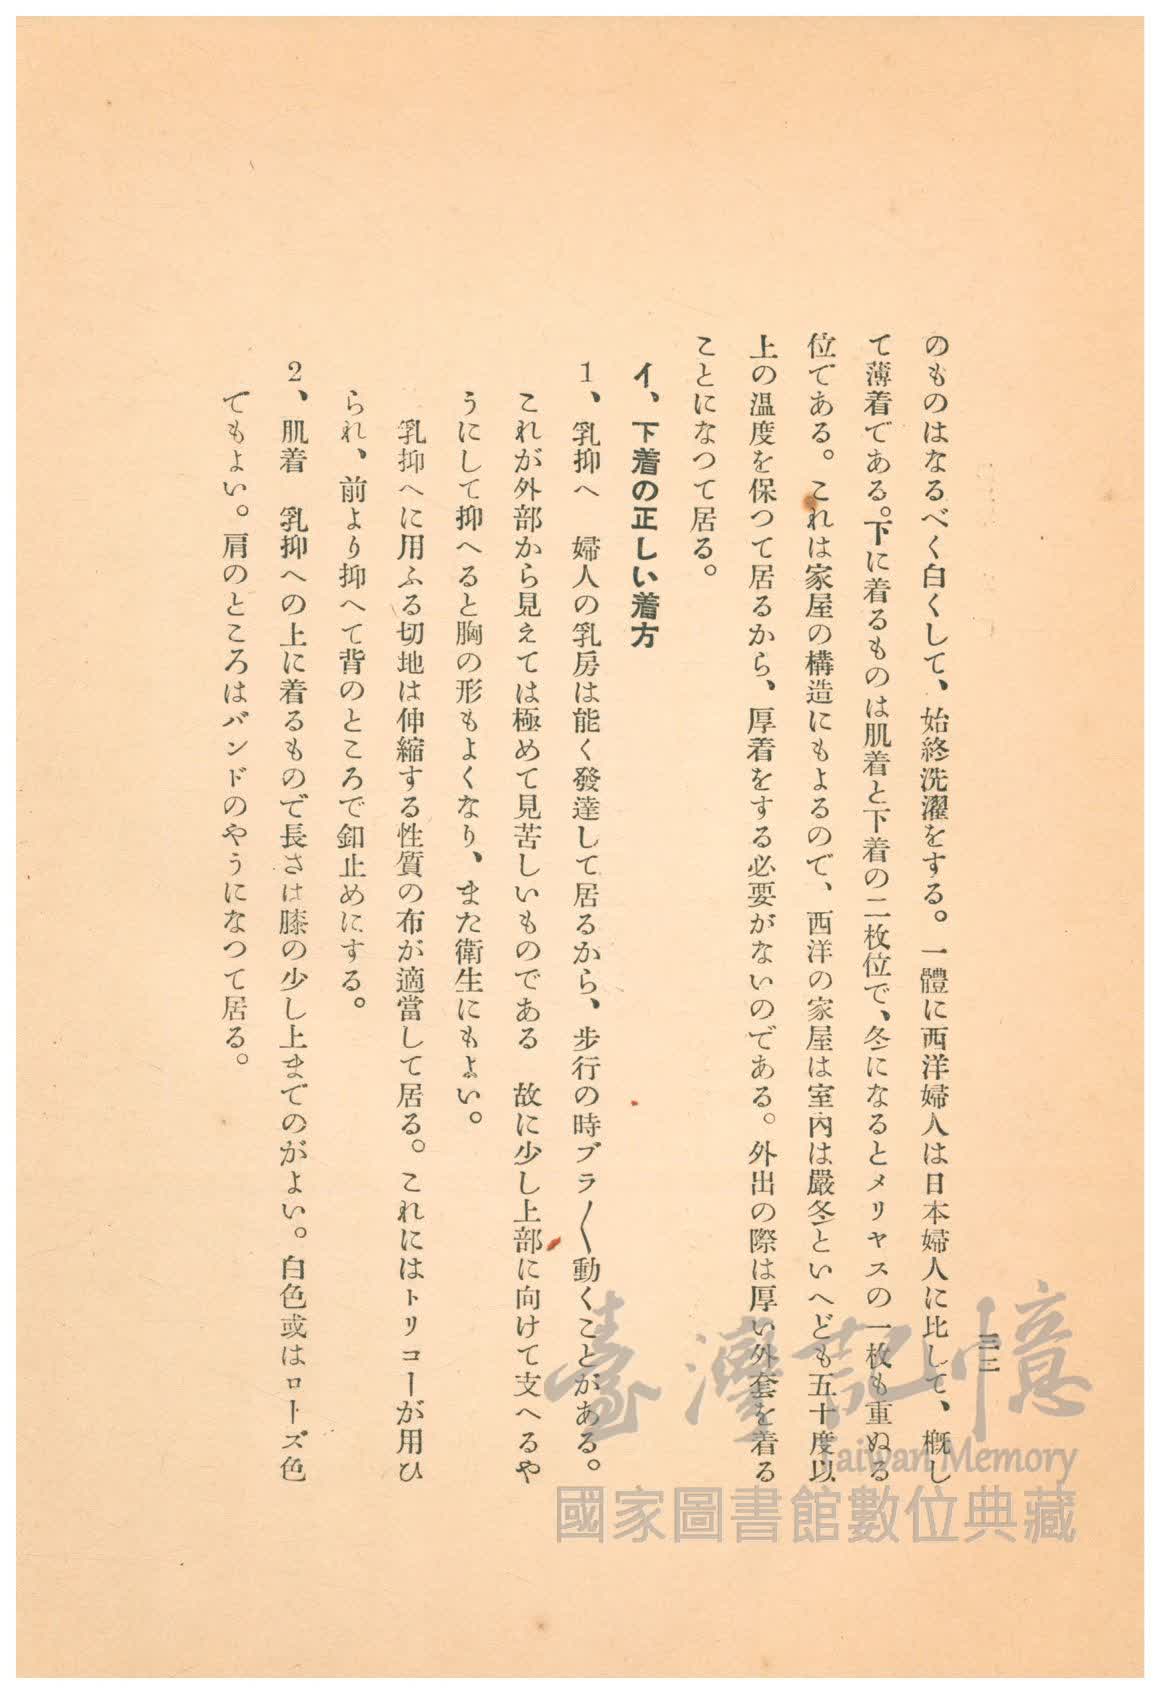 三二
のものはなるべく白くして、始終洗濯をする。一體に西洋婦人は日本婦人に比して、概し
て薄着である。下に着るものは肌着と下着の二枚位で、冬になるとメリヤスの一枚も重ぬる
位である。これは家屋の構造にもよるので、西洋の家屋は室內は嚴冬といへども五十度以
上の溫度を保つて居るから、厚着をする必要がないのである。外出の際は厚い外套を着る
ことになつて居る。
イ、下着の正しい着方
1、乳抑へ　婦人の乳房は能く發達して居るから、步行の時ブラ〱動くことがある。
これが外部から見えては極めて見苦しいものである　故に少し上部に向けて支へるや
うにして抑へると胸の形もよくなり、また衛生にもよい。
乳抑へに用ふる切地は伸縮する性質の布が適當して居る。これにはトリコーが用ひ
られ、前より抑へて背のところで釦止めにする。
2、肌着　乳抑への上に着るもので長さは膝の少し上までのがよい。白色或はローズ色
でもよい。肩のところはバンドのやうになつて居る。
臺灣記憶
Taiwan Memory
國家圖書館數位典藏